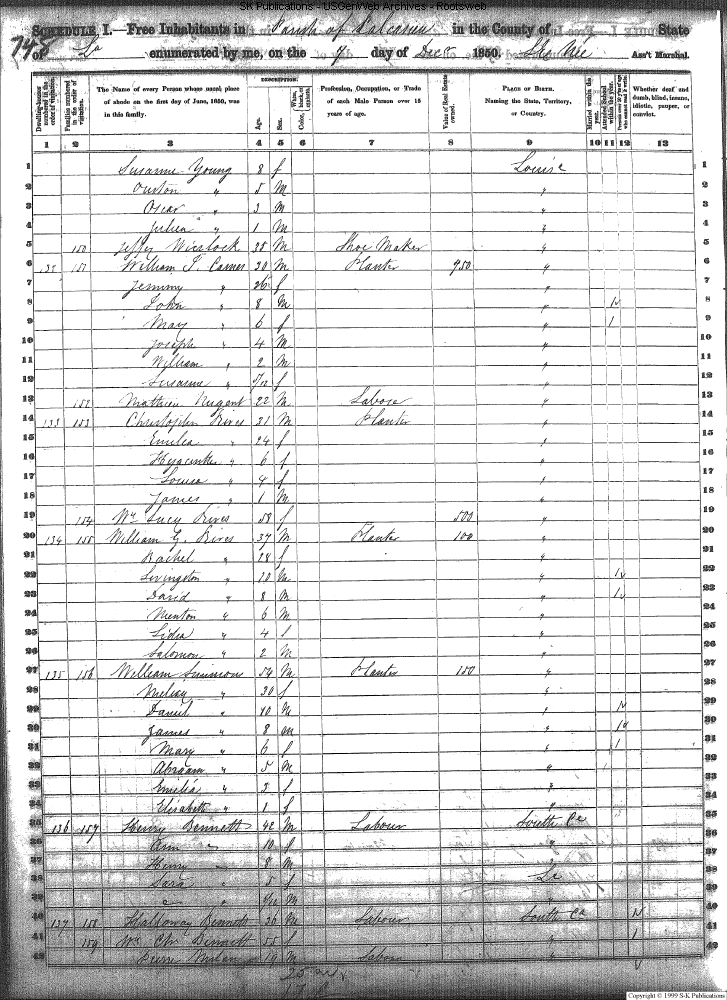 SK Publications - USGenWeb Archives - Rootsweb
SCHEDULE I.—Free Inhabitants in Parish of Calcasieu in the County of State
of La enumerated by me, on the 9 day of Decr 1850. Ass't Marshal.
745
Dwelling-houses numbered in the order of visitation. Families numbered in the order of visitation. The Name of every Person whose usual place of abode on the first day of June, 1850, was in this family. DESCRIPTION. Age. Sex. Color, White, black, or mulatto. Profession, Occupation, or Trade of each Male Person over 15 years of age. Value of Real Estate owned. PLACE OF BIRTH. Naming the State, Territory, or Country. Married within the year. Attended School within the year. Persons over 20 y'rs of age who cannot read & write. Whether deaf and dumb, blind, insane, idiotic, pauper, or convict.
1 2 3 4 5 6 7 8 9 10 11 12 13
1 Susanne Young 8 f 1
2 Ouston " 5 M " 2
3 Oscar " 3 M " 3
4 Julien " 1 M " 4
5 150 Jeffry 35 M Shoe Maker " 5
6 132 151 William J. 30 M Planter 950 " 6
7 Jemimy " 26 f " 7
8 John " 8 M " 8
9 May " 6 f " 1 9
10 Joseph " 4 M " 10
11 William " 2 M " 11
12 Susanne " /12 f " 12
13 152 Mathieu Nugent 22 M Labore " 13
14 133 153 Christophen Rives 31 M Planter " 14
15 Emilea " 24 f " 15
16 Hyacinthe " 6 f " 16
17 Louisa " 4 f " 17
18 James " 1 M " 18
19 154 Lucy Rives 58 f 500 " 19
20 134 155 William G. Rives 37 M Planter 100 " 20
21 Rachel " 28 f " 21
22 Livingston " 10 M " 22
23 David " 8 M " 23
24 Menton " 6 M " 24
25 Lidia " 4 f " 25
26 Salomon " 2 M " 26
27 135 156 William Simmons 54 M Planter 150 " 27
28 " 30 f " 28
29 Daniel " 10 M " 29
30 James " 8 m " 30
31 Mary " 6 f " 1 31
32 Abraam " 5 M " 32
33 Emilia " 2 f " 33
34 Elisabeth " 1 f " 34
35 136 157 Henry Bennett 42 M Labour South Ca 35
36 Ann " 10 f " 36
37 Henry " 8 M " 37
38 Sara " 5 f La 38
39 " /12 M " 39
40 137 158 Bennett 36 M Labour South Ca 40
41 159 Bennett 55 f " 1 41
42 Pierre 19 M Labour " 42
Copyright © 1999 S-K Publications